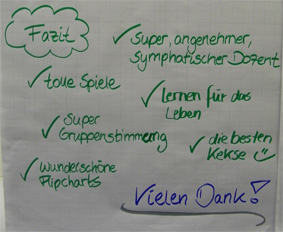 Fazit
✓ Super, angenehmer,
symphatischer Dozent
✓ tolle Spiele
✓ lernen für das
Leben
✓ Super
Gruppenstimmung
✓ die besten
Kekse ☺
✓ wunderschöne
Flipcharts
Vielen Dank!